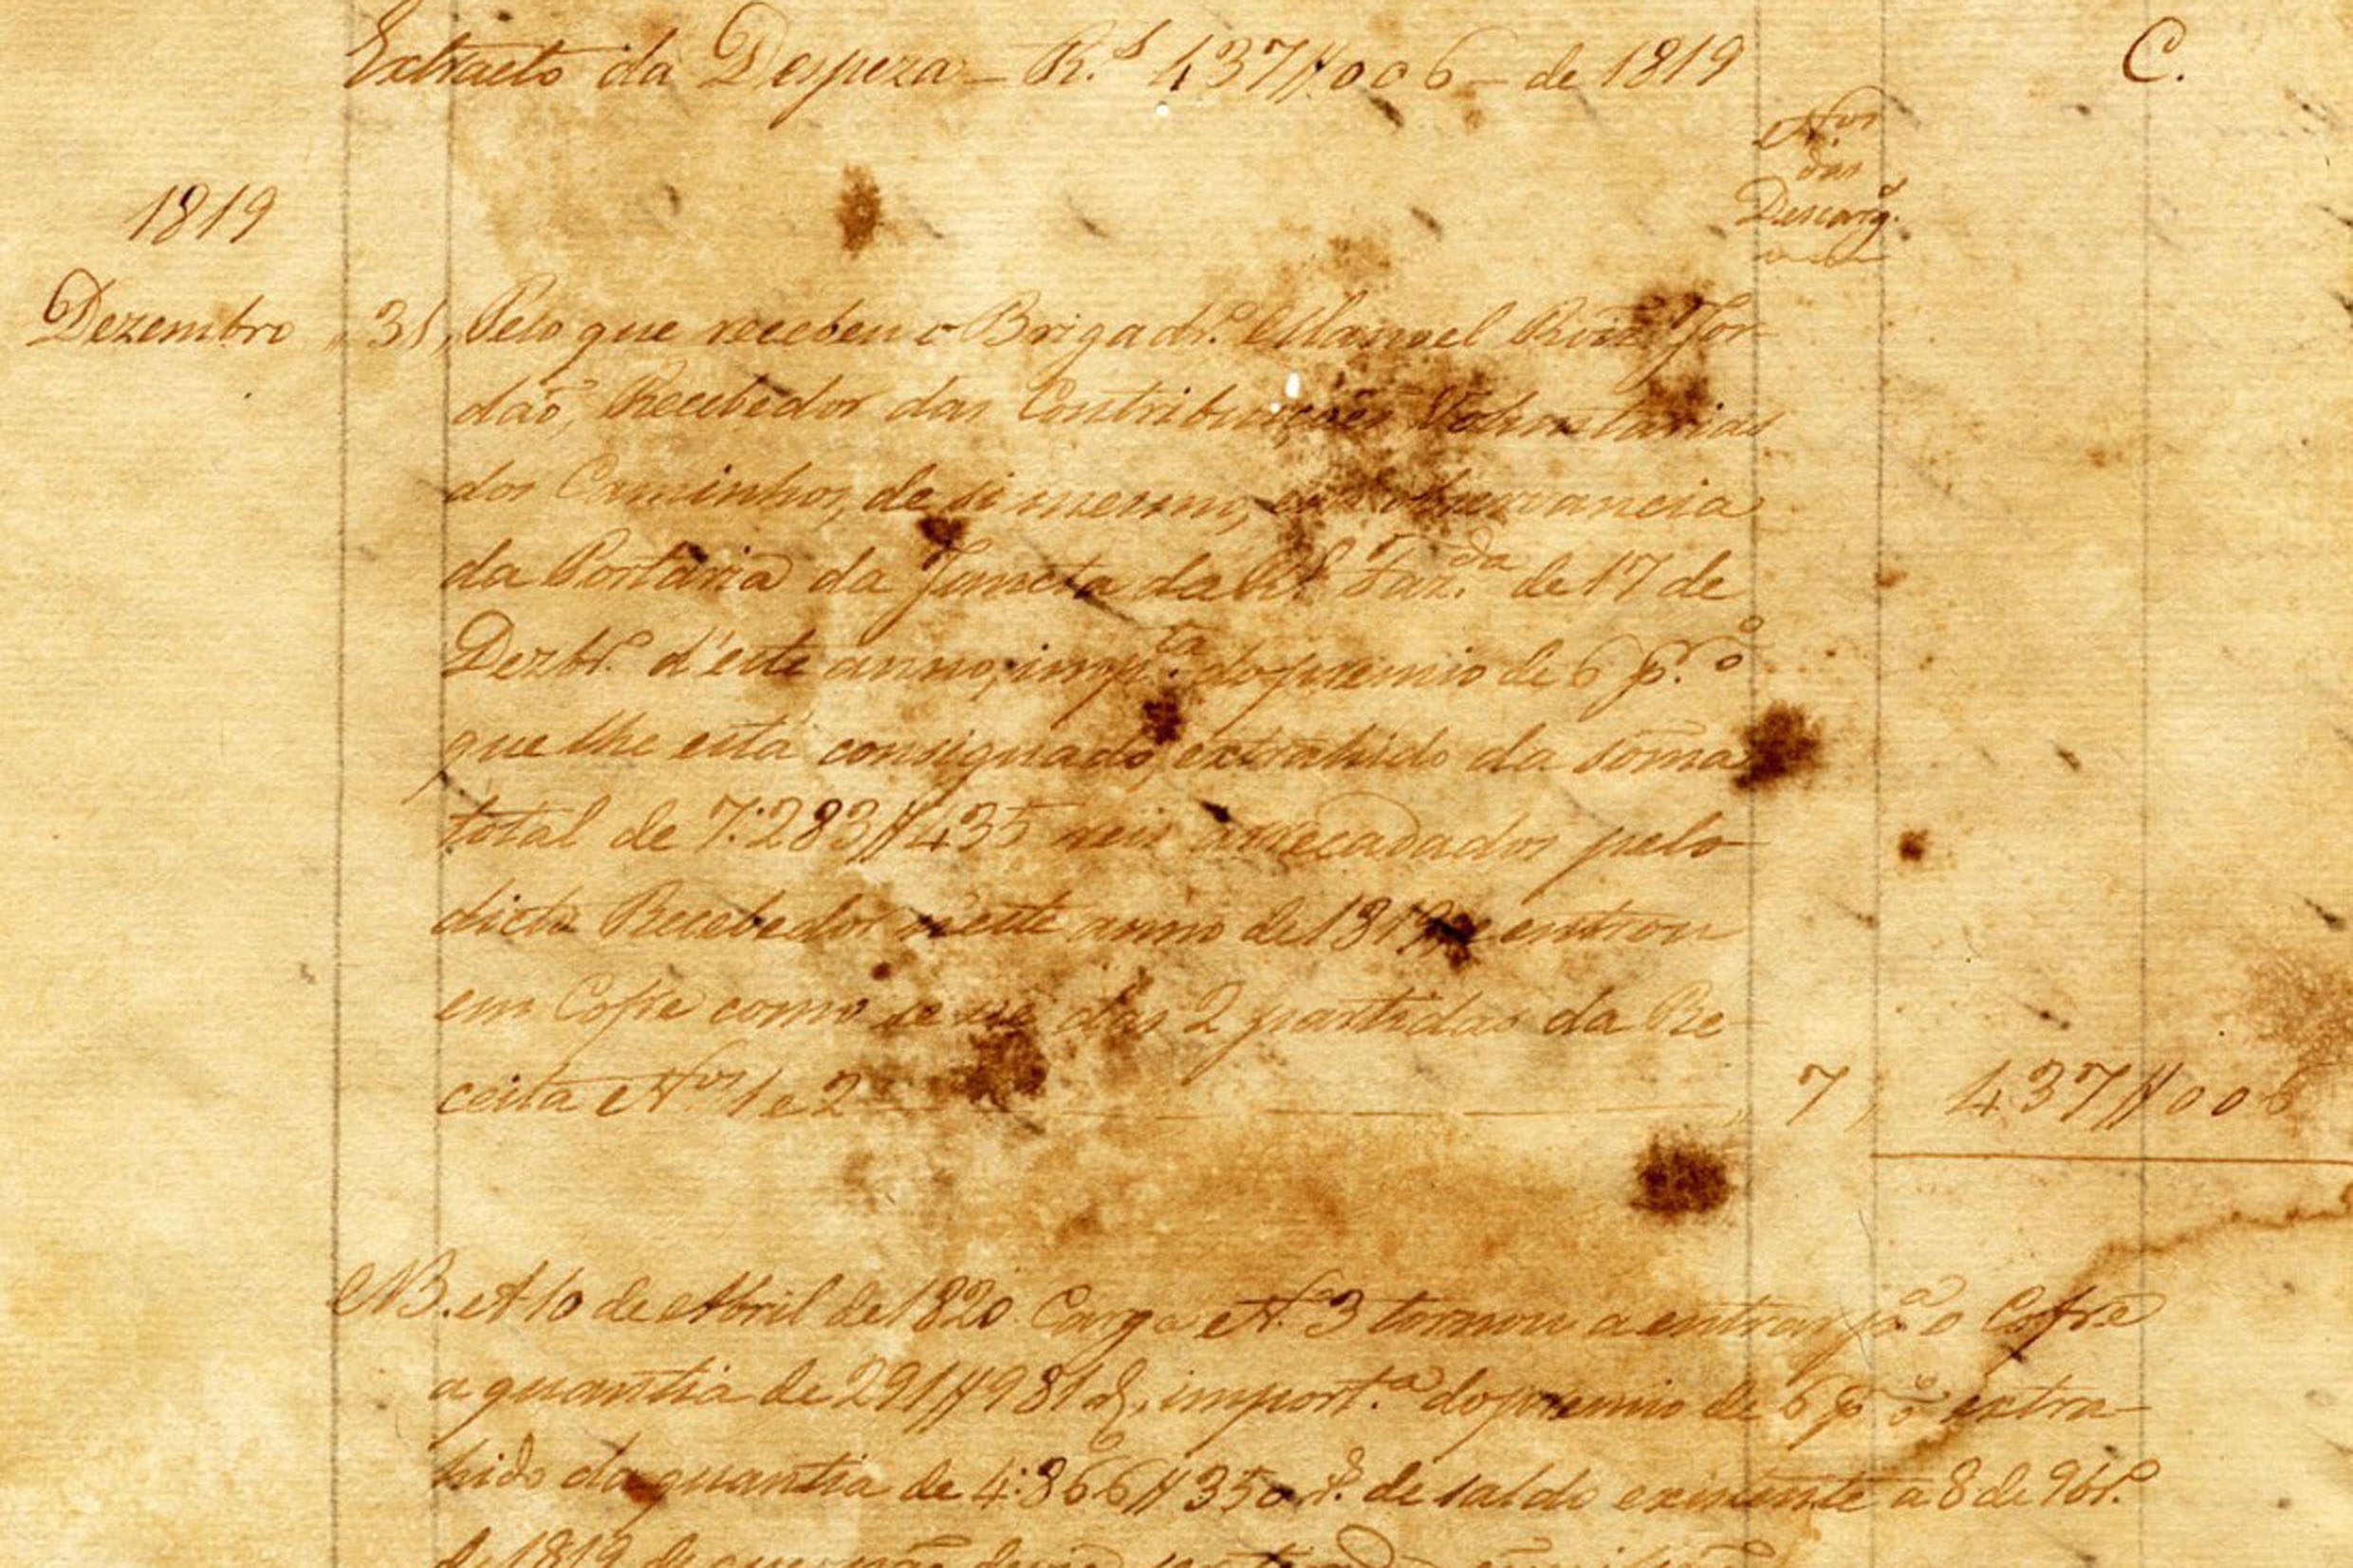 Extracto da Despeza - R.s 437//006 - de 1819
C.
N.os
das
Descarg.s
1819
Dezembro 31, Pelo que recebeu o Brigad.ro Manoel Roiz' Jor-
daõ, Recebedor das Contribuições Voluntarias
dos Caminhos, de si mesmo, em observancia
da Portaria da Juncta da R.l Faz.da de 17 de
Dezbr.o d'este anno, imp.ta do premio de 6 p.r %
que lhe está consignado, extrahido da soma
total de 7:283//435 reis arrecadados pelo
dicto Recebedor n'este anno de 1819, e entrou
em Cofre como se vê das 2 partidas da Re-
ceita N.os 1 e 2 7, 437//006
NB. A 10 de Abril de 1820 Carga N.o 3 tornou a entrar p.a o Cofre
a quantia de 291//981 r.s, import.a do premio de 6 p % extra-
hido da quantia de 4:866//350 r.s de saldo existente a 8 de 9br.o
de 1819 de que não devia